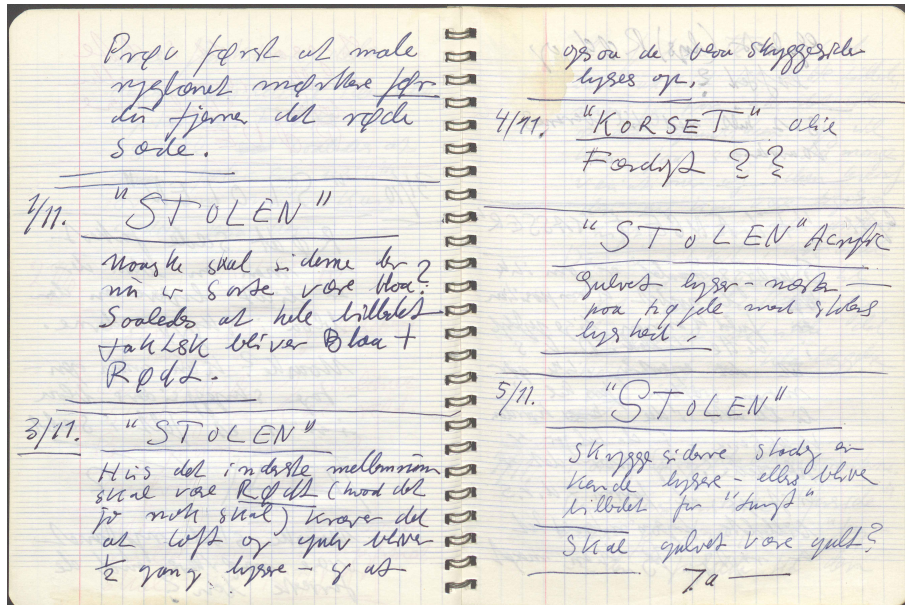 Prøv først at male
ryglænet mørkere før
du fjerner det røde
sæde.
1/11. "STOLEN"
Maaske skal siderne der
nu er sorte være blaa?
Saaledes at hele billedet
faktisk bliver Blaa +
Rødt.
3/11. "STOLEN"
Hvis det inderste mellemrum
skal være Rødt (hvad det
jo nok skal) kræver det
at loft og gulv bliver
1/2 gang lysere – og at
ogsaa de skyggesider
lyses op.
4/11. "KORSET" olie
Færdigt ? ?
"STOLEN" Acrylic
Gulvet lysere – næsten –
paa højde med
lyshed.
5/11. "STOLEN"
Skyggesiderne stadig en
kende lysere – ellers bliver
billedet for "tungt"
Skal gulvet være gult?
Ja